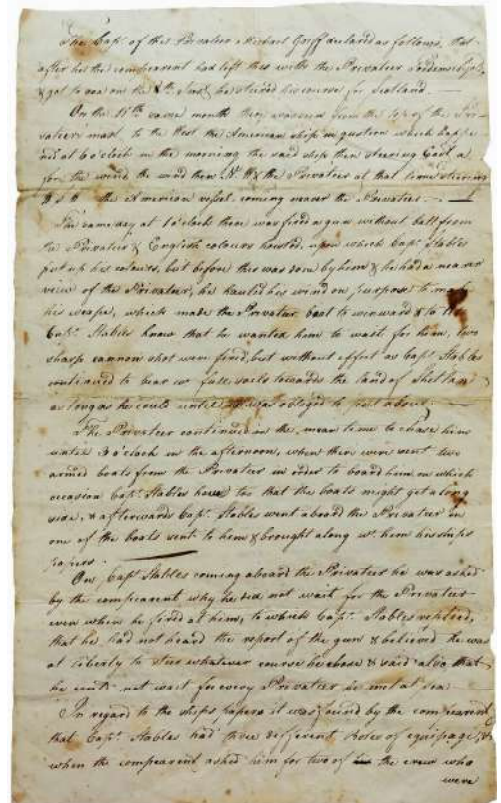 The Capt. of the Privateer Michael Goff declared as follows, that
after he the comparent had left this with the Privateer
& got to sea on the 8th Inst. he steered his course for Scotland.
On the 11th same month they was seen from the top of the Pri-
vateers mast to the West the American ship in question which happe
ned at 6 o'clock in the morning the said ship then steering East a
for the wind the wind then N. W & the Privateer at that time steering
the American vessel coming nearer the Privateer.
The same day at 1 o'clock there was fired a gun without ball from
the Privateer & English colours hoisted, upon which Capt. Stables
put up his colours, but before this was seen by him & he had a nearer
view of the Privateer, he hauled his wind on purpose to make
his escape, which made the Privateer beat to winward & to let
Capt. Stables know that he wanted him to wait for him, two
sharp cannon shot were fired, but without effect as Capt. Stables
continued to bear w. full sails towards the land of Shetland
as long as he could until he was obliged to put about.
The Privateer continued in the mean time to chase him
until 3 o'clock in the afternoon, when there were sent two
armed boats from the Privateer in order to board him on which
occasion Capt. Stables hove too that the boats might get along
side, & afterwards Capt. Stables went aboard the Privateer in
one of the boats sent to him & brought along wt. him his ships
papers.
On Capt. Stables coming aboard the Privateer he was asked
by the comparent why he did not wait for the Privateer
even when he fired at him, to which Capt. Stables replied,
that he had not heard the report of the gun & believed he was
at liberty to steer whatever course he chose & said also that
he could not wait for every Privateer he met at sea.
In regard to the ships papers it was found by the comparent
that Capt. Stables had three different Roles of equipage, &
when the comparent asked him for two of the crew who
were